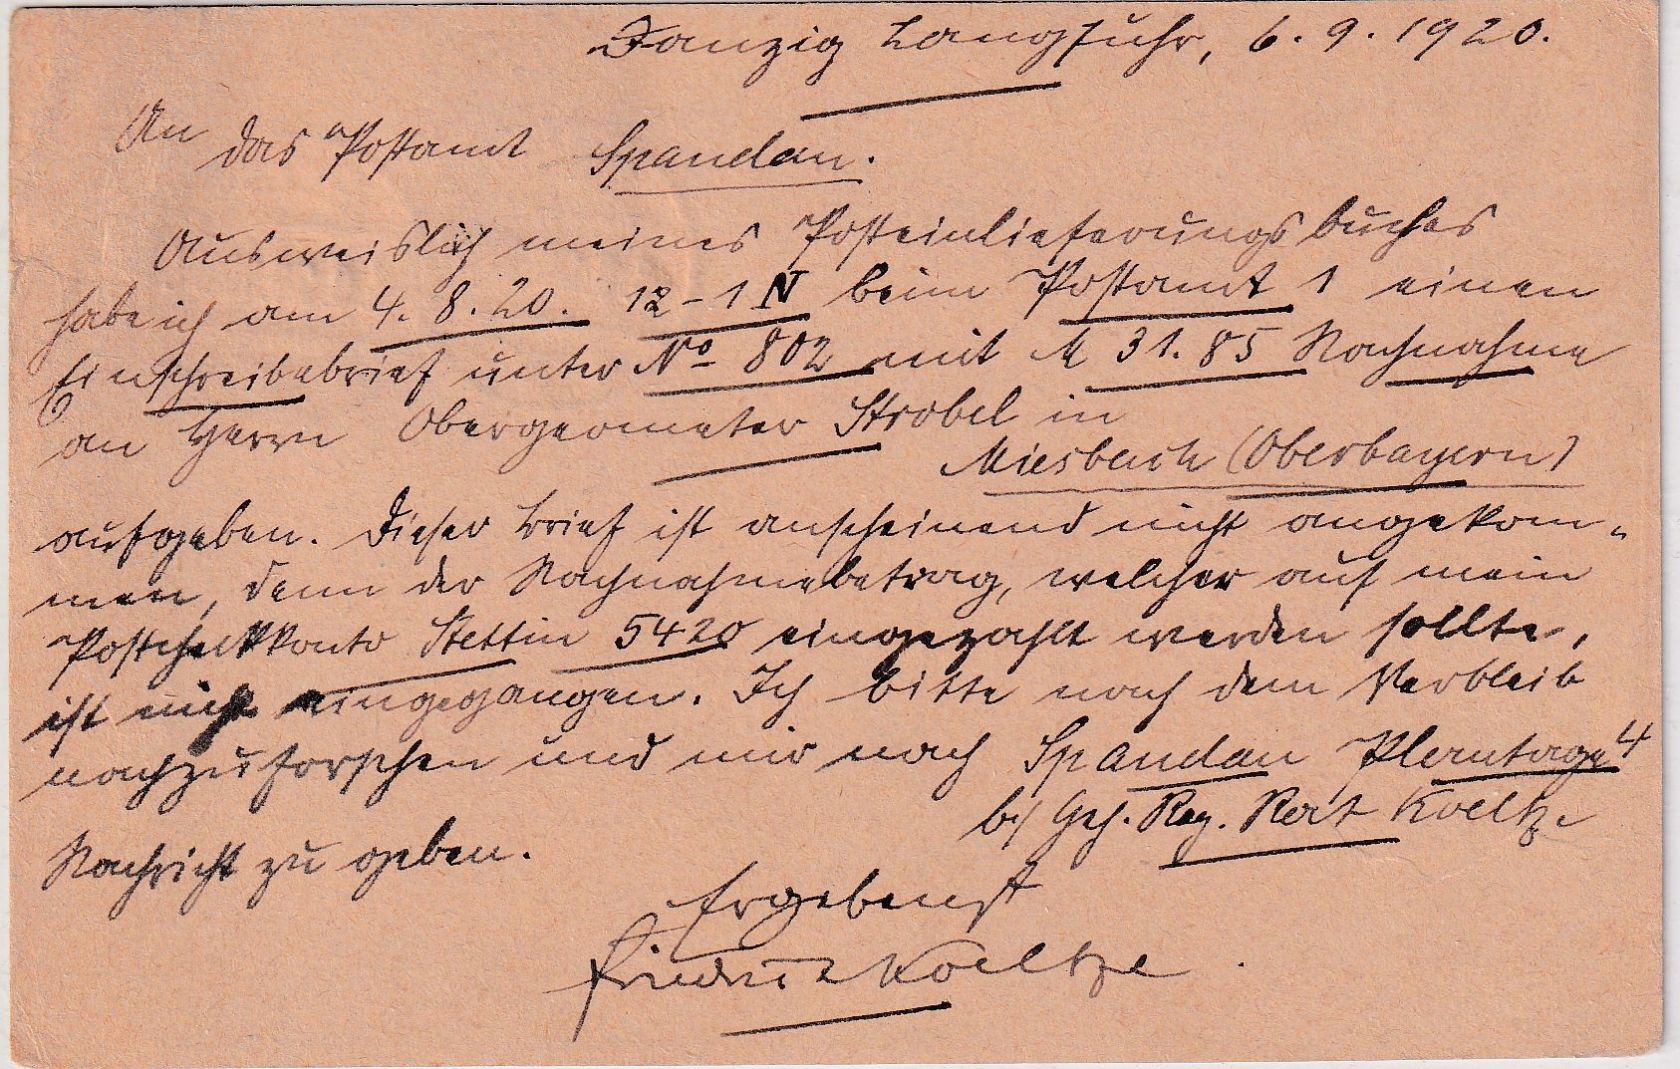 Danzig Langfuhr, 6. 9. 1920.
An das Postamt Spandau.
Ausweislich meines Posteinlieferungsbuches
habe ich am 4. 8. 20. 12-1 N beim Postamt 1 einen
Einschreibebrief unter No 802 mit M 31.85 Nachnahme
an Herrn Obergeometer Strobel in
Miesbach (Oberbayern)
aufgeben. Dieser Brief ist anscheinend nicht angekom-
men, denn der Nachnahmebetrag, welcher auf mein
Postscheckkonto Stettin 5420 eingezahlt werden sollte,
ist nicht eingegangen. Ich bitte nach dem Verbleib
nachzuforschen und mir nach Spandau Plantage 4
b/ Geh. Reg. Rat Koeltze
Nachricht zu geben.
Ergebenst
Friedrich Koeltze.